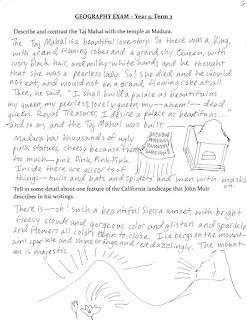 GEOGRAPHY EXAM - Year 5, Term 3
Describe and contrast the Taj Mahal with the temple at Madura.
The Taj Mahal is a beautiful love-story. So there was a King,
with grand, flowing robes and a grand, shy Queen, with
ivory black hair, and milky-white hands and he thought
that she was a peerless lady. So! she died, and he would
not eat, and would not on a grand, flowing robe at all.
Then, he said, "I shall build a palace as beautiful as
my queen, my peerless lovely queen, my—ahem!—dead
queen. Royal Treasurer, I desire a palace as beautiful as...."
and so on, and the Taj Mahal was built.
Madura has thousands of ugly
pink statues, cheesy because there's
too much—pink, pink, pink, pink.
Inside there are all sorts of
things—bulls and bats and spiders and men with masks
on.
Tell in some detail about one feature of the California landscape that John Muir
describes in his writings.
There is—oh! such a beautiful Sierra sunset, with bright
fleecy clouds and gorgeous color and glisten and sparkle
and flowers all colors begin to close. Icebergs on the mount-
ains sparkle and shine orange and red dazzlingly. The mount-
ain is majestic.